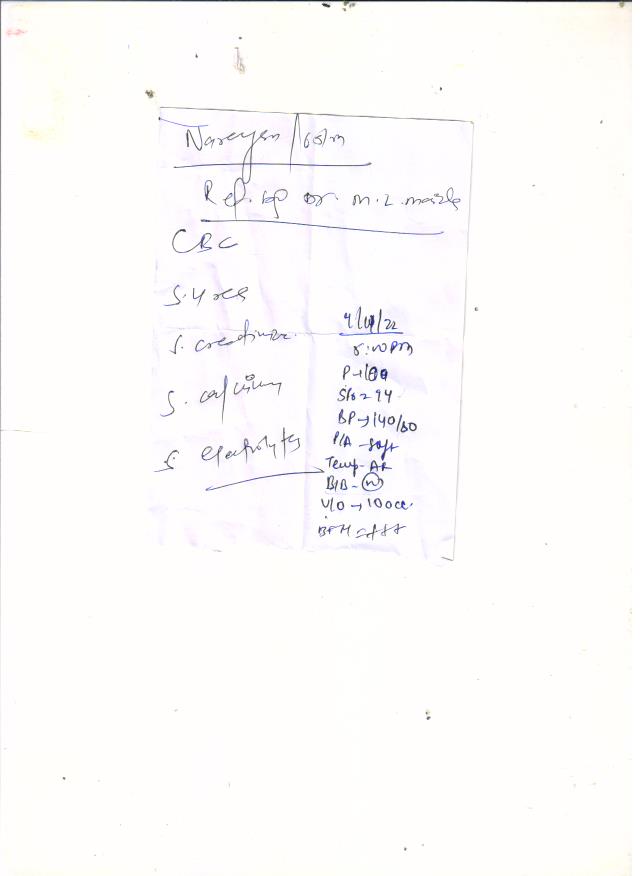 Narayan / 60/m
Ref. by Dr. M.L.
CBC
S. Urea
S. creatinine
S. calcium
S. electrolytes
P→100
SPO2 94
BP→140/60
P/A - soft
Temp - AF
B/B - (N)
U/O → 100cc.